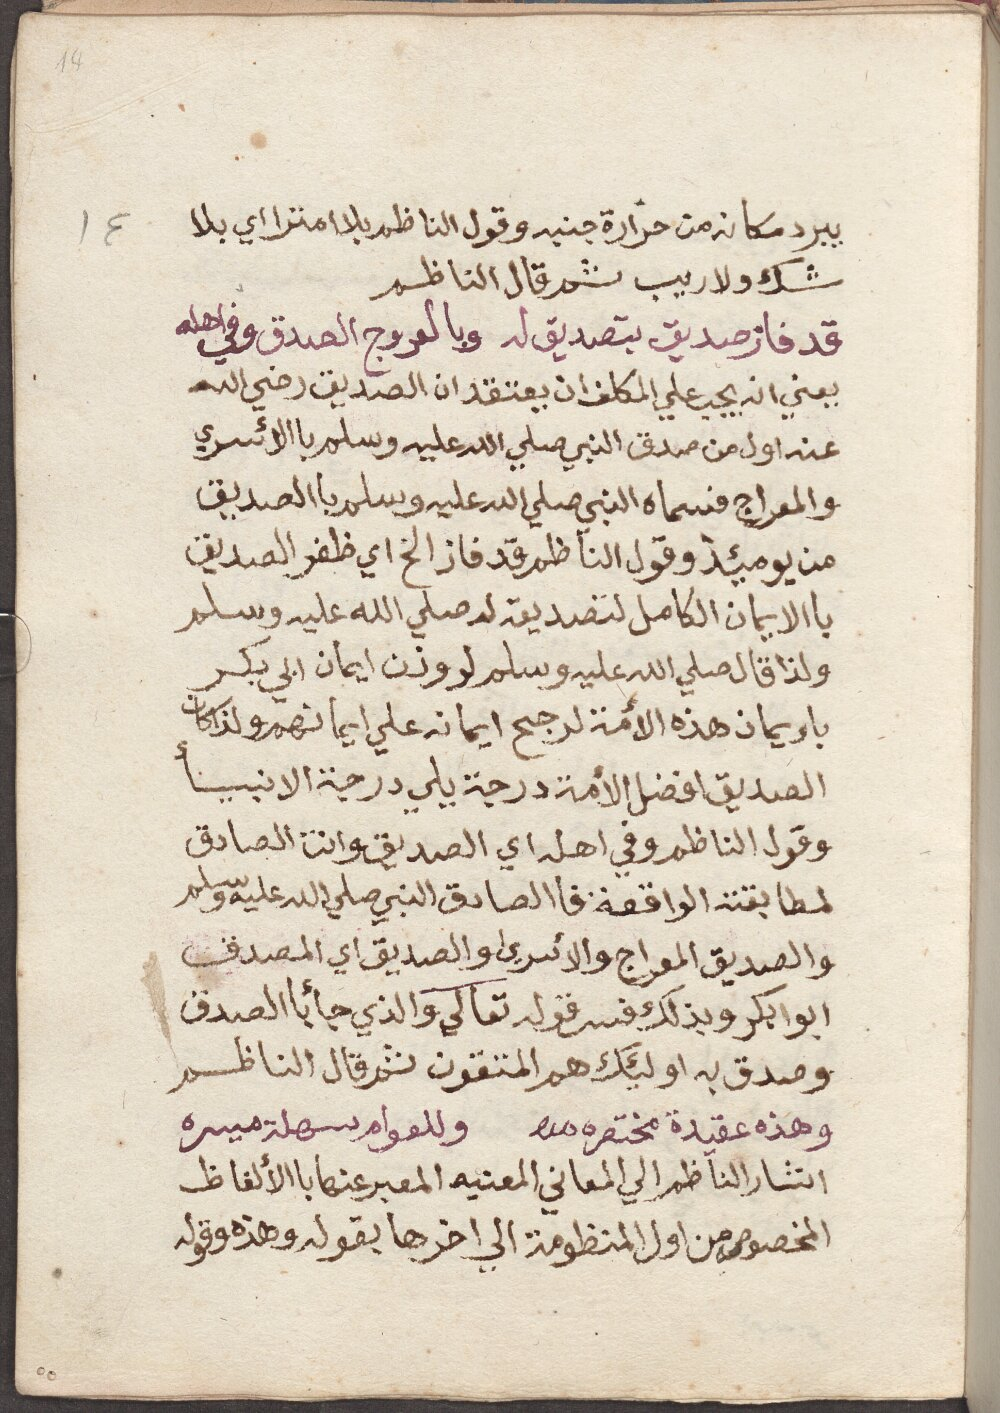 14
١٤
يبرد مكانه من حرارة جنبه وقول الناظم بلا امترا اي بلا
شك ولا ريب ثم قال الناظم
قد فاز صديق بتصديق له وبالعروج الصدق وفي اهله
يعني انه يجب علي المكلف ان يعتقد ان الصديق رضي الله
عنه اول من صدق النبي صلي الله عليه وسلم باالأسري
والمعراج فسماه النبي صلي الله عليه وسلم باالصديق
من يومئذ وقول الناظم قد فاز الخ اي ظفر الصديق
باالايمان الكامل لتصديقه له صلي الله عليه وسلم
ولذا قال صلي الله عليه وسلم لو وزن ايمان ابي بكر
بايمان هذه الأمة لرجح ايمانه علي ايمانهم ولذا كان
الصديق افضل الأمة درجة يلي درجة الانبيأ
وقول الناظم وفي اهله اي الصديق وانت الصادق
لمطابقته الواقعة فاالصادق النبي صلي الله عليه وسلم
والصديق المعراج والاسري والصديق اي المصدق
ابوابكر وبذلك فسر قوله تعالي والذي جأ باالصدق
وصدق به اوليئك هم المتقون ثم قال الناظم
وهذه عقيدة مختصره وللعوام سهلة ميسره
اشار الناظم الي المعاني المعنيه المعبر عنها باالألفاظ
المخصوص من اول المنظومة الي اخرها بقوله وهذه وقوله